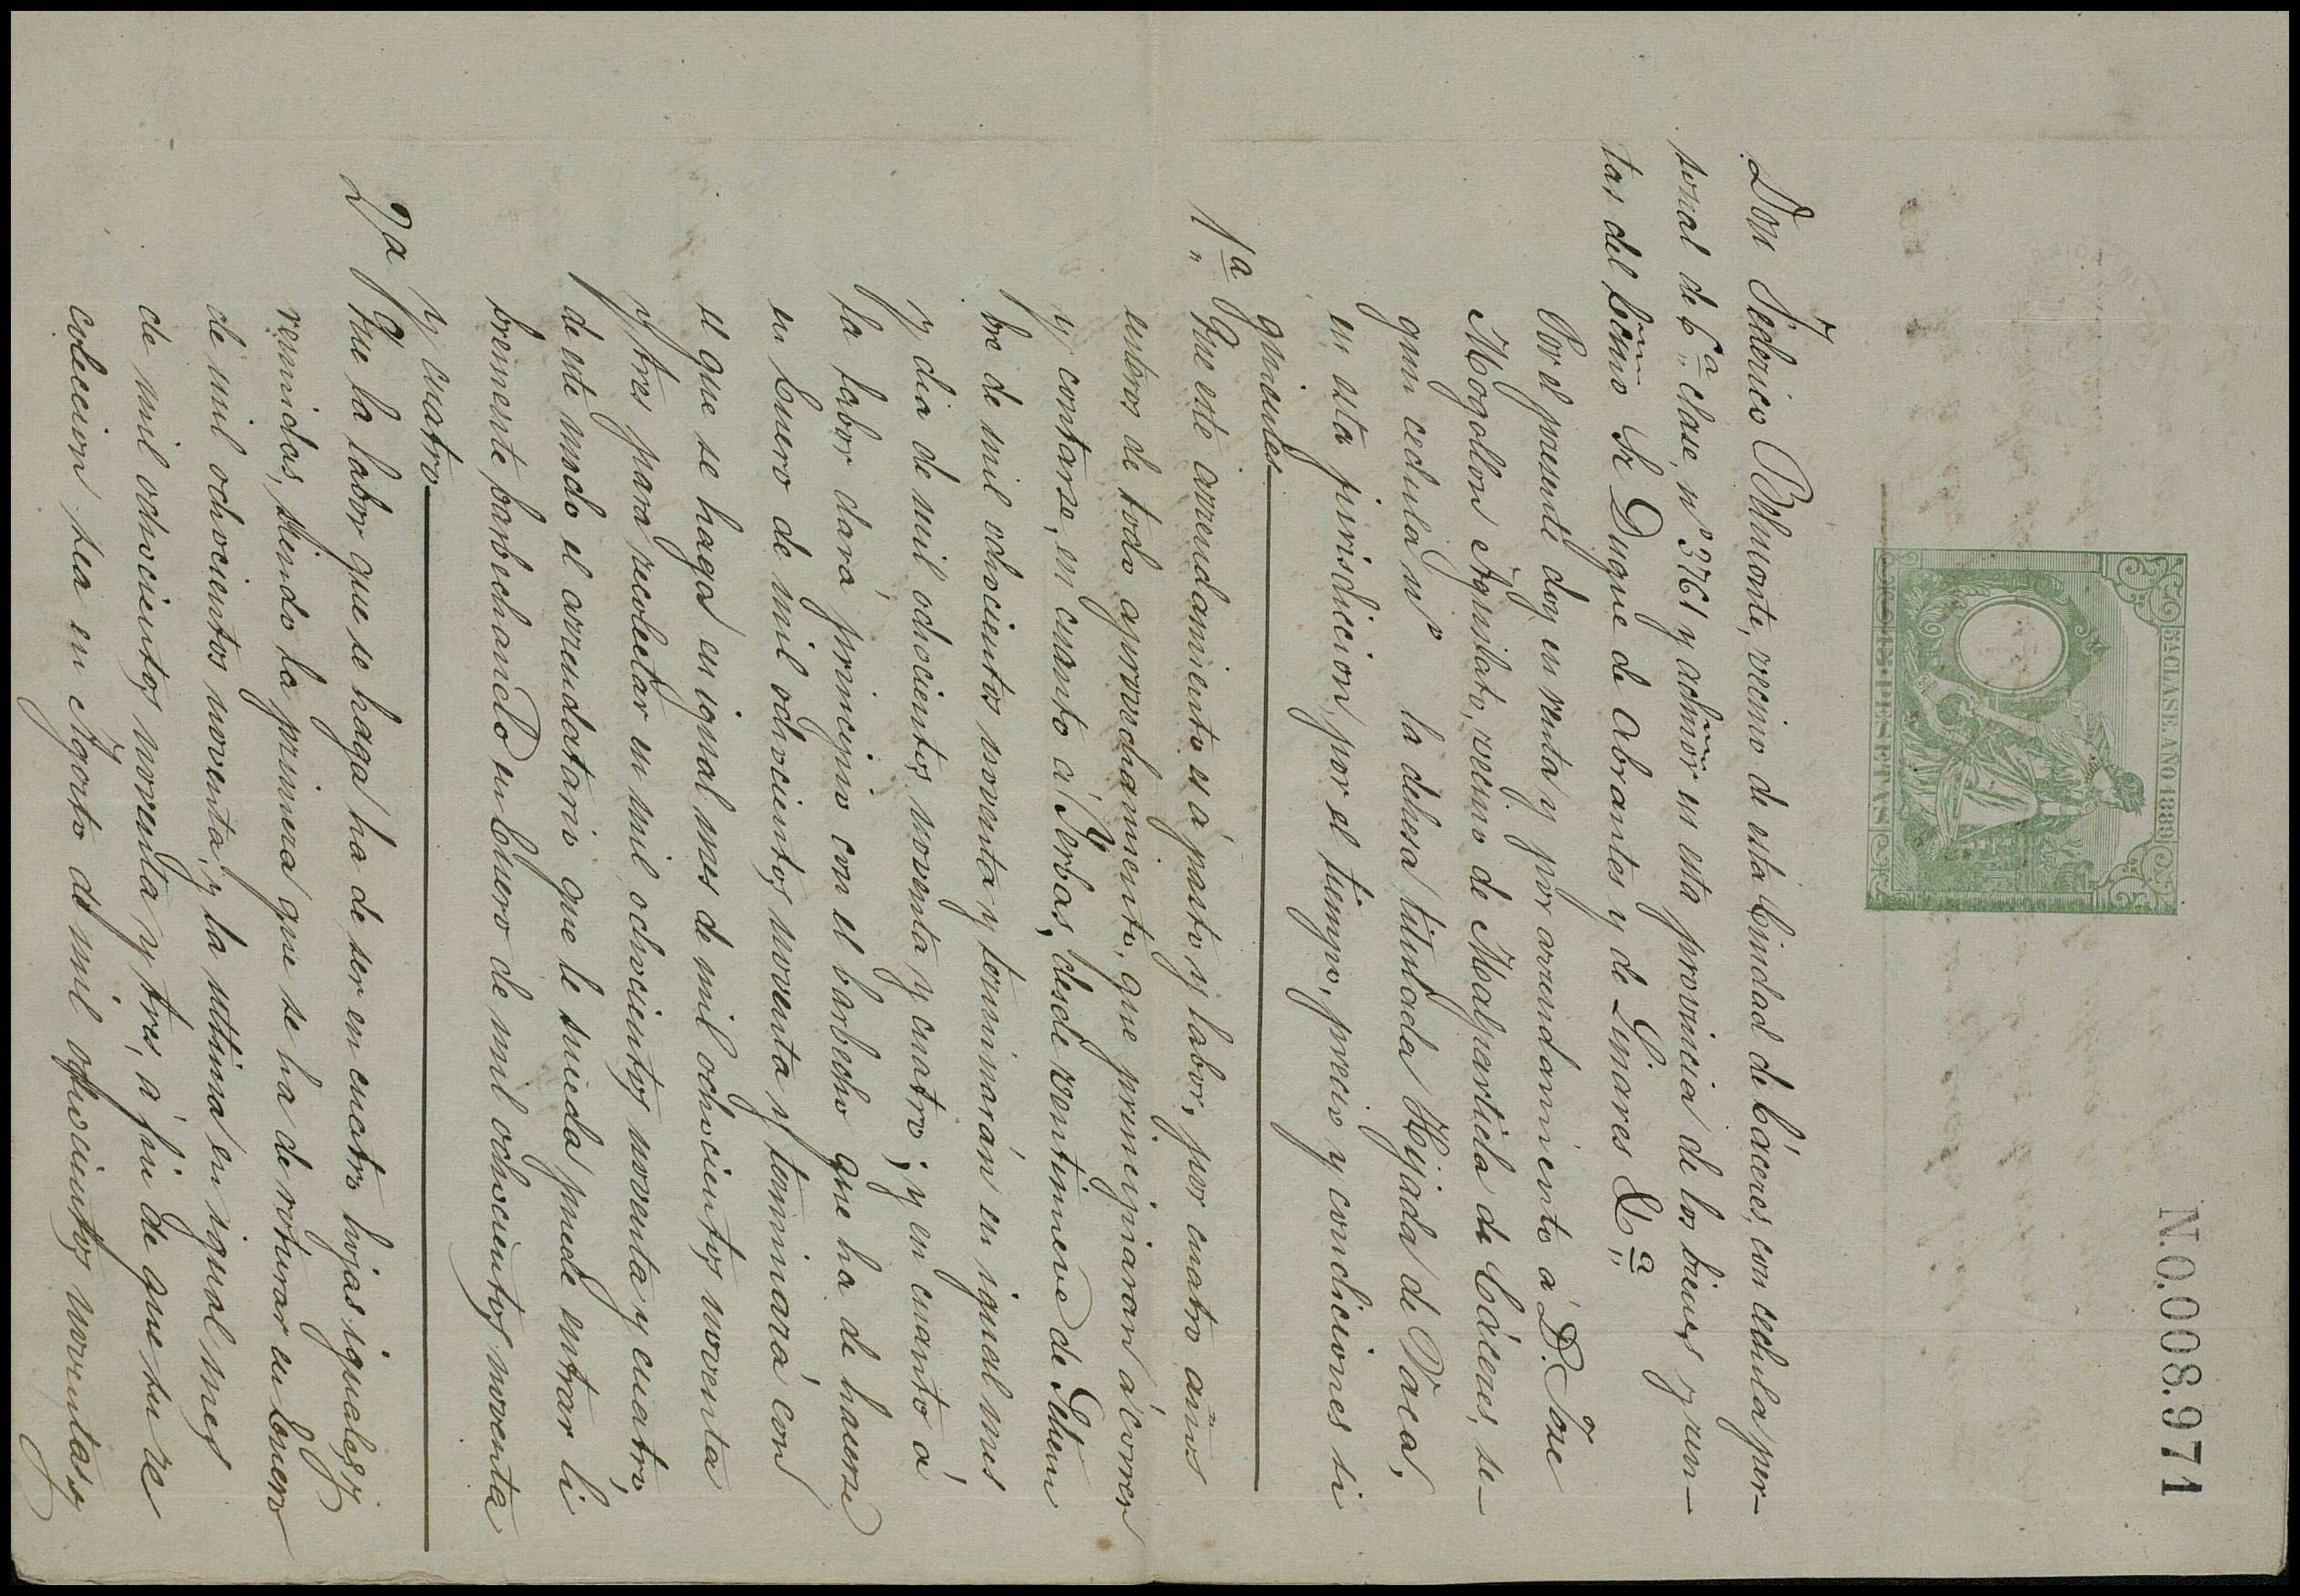 N.0.008.971
5ª CLASE. AÑO 1889
12 PESETAS
Don Federico Belmonte, vecino de esta Ciudad de Cáceres, con cedula per-
sonal de 6.ª clase, nº 3761 y admor en esta provincia de los bienes y ren-
tas del Ecmo Sr Duque de Abrantes y de Linares &.ª
Por el presente doy en renta y por arrendamiento á D. Jose
Mogollon Aguilato, vecino de Malpartida de Cáceres, se-
gun cedula nº la dehesa titulada Hijada de Vaca,
en esta jurisdiccion, por el tiempo, precio y condiciones si
guientes
1.ª Que este arrendamiento es á pasto y labor, por cuatro años
enteros de todo aprovechamiento, que principiaran á correr
y contarse, en cuanto á Yerbas, desde ventinueve de Setiem
bre de mil ochocientos noventa y terminarán en igual mes
y dia de mil ochocientos noventa y cuatro; y en cuanto á
la labor dará principio con el barbecho que ha de hacerse
en Enero de mil ochocientos noventa y terminará con
el que se haga en igual mes de mil ochocientos noventa
y tres para recolectar en mil ochocientos noventa y cuatro,
de este modo el arrendatario que le suceda puede entrar li
bremente barbechando en Enero de mil ochocientos noventa
y cuatro
2ª Que la labor que se haga ha de ser en cuatro hojas iguales, y
reunidas, siendo la primera que se ha de roturar en Enero
de mil ochocientos noventa, y la ultima en igual mes
de mil ochocientos noventa y tres, á fin de que su re
coleccion sea en Agosto de mil ochocientos noventa y